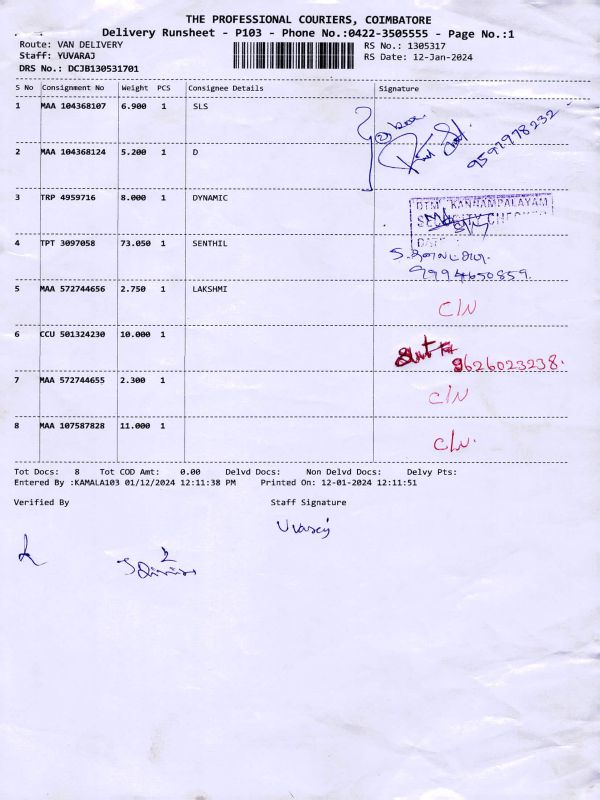 THE PROFESSIONAL COURIERS, COIMBATORE
Delivery Runsheet - P103 - Phone No.:0422-3505555 - Page No.:1
Route: VAN DELIVERY
RS No.: 1305317
Staff: YUVARAJ
RS Date: 12-Jan-2024
DRS No.: DCJB130531701
S No Consignment No Weight PCS Consignee Details Signature
1 MAA 104368107 6.900 1 SLS
9597978232
2 MAA 104368124 5.200 1 D
3 TRP 4959716 8.000 1 DYNAMIC
DTM KANNAMPALAYAM
SECURITY CHECKED
DATE
4 TPT 3097058 73.050 1 SENTHIL
9994650859.
5 MAA 572744656 2.750 1 LAKSHMI
C/N
6 CCU 501324230 10.000 1
9626023238.
7 MAA 572744655 2.300 1
C/N
8 MAA 107587828 11.000 1
C/N.
Tot Docs: 8 Tot COD Amt: 0.00 Delvd Docs: Non Delvd Docs: Delvy Pts:
Entered By :KAMALA103 01/12/2024 12:11:38 PM Printed On: 12-01-2024 12:11:51
Verified By Staff Signature